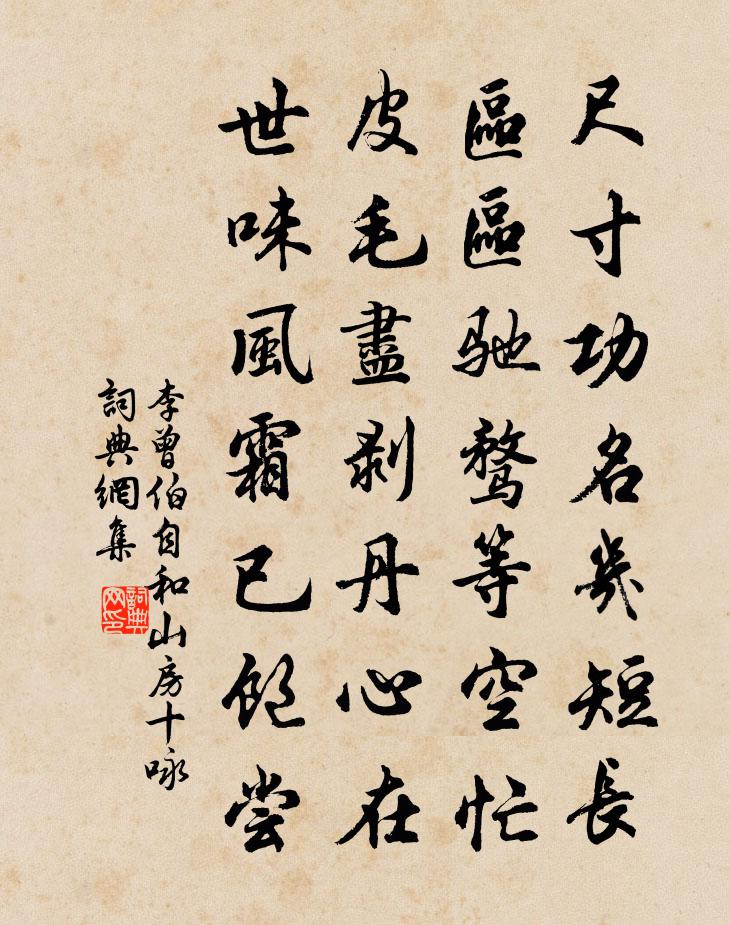 尺寸功名幾短長
區區馳騖等空忙
皮毛盡剥丹心在
世味風霜已飽尝
李曾伯自和山房十咏
詞典網集
詞典
网印